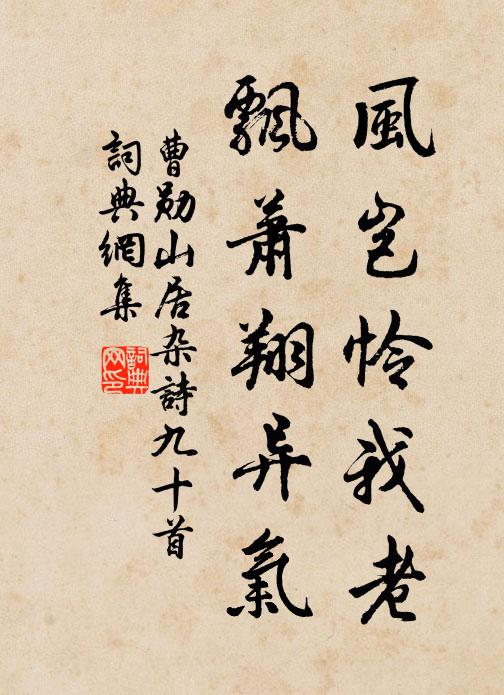 風岂怜我老
飘萧翔异氣
曹勋山居杂詩九十首
詞典網集
詞典
网印